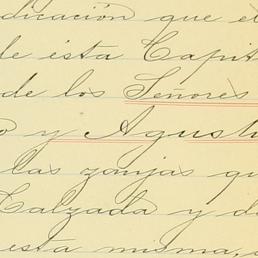 dicación que el
de ésta Capit
de los Señores
o y Agustí
las zanjas qu
Calzada y de
esta misma,